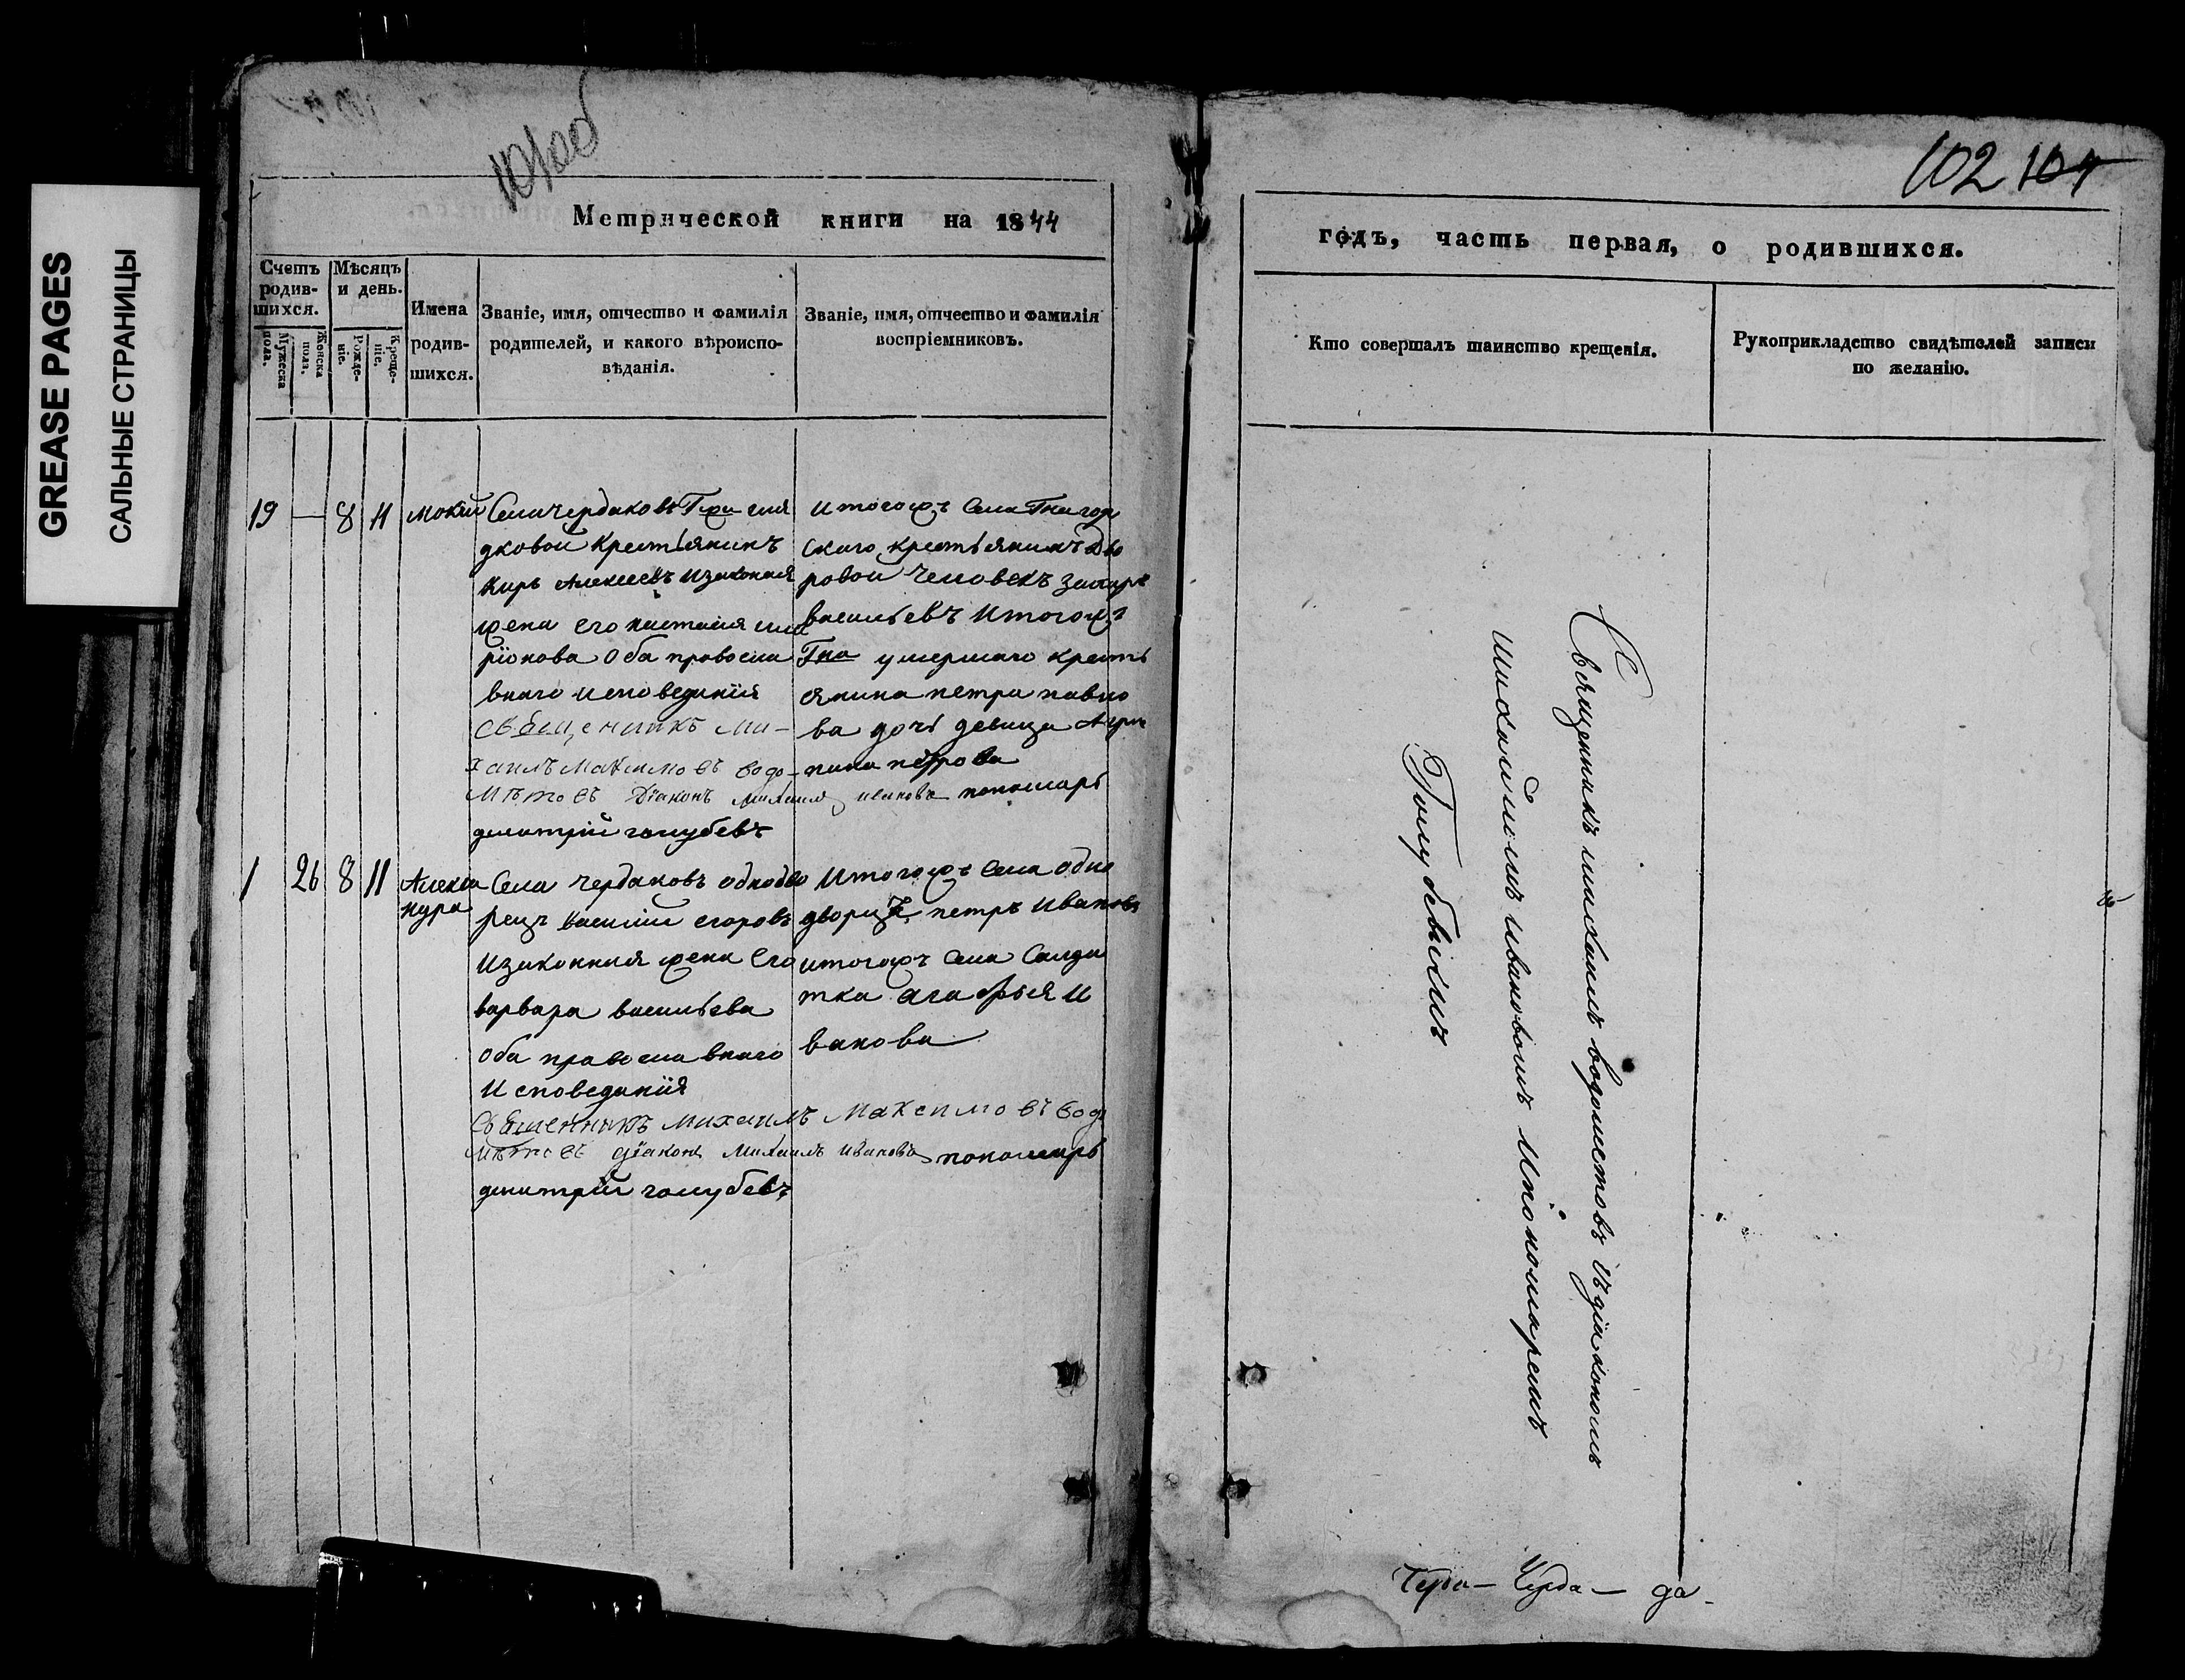 GREASE PAGES
САЛЬНЫЕ СТРАНИЦЫ
101об
Метрической книги на 1844
Счетъ родив-шихся.
Мужеска пола.
Женска пола.
Мѣсяцъ и день.
Рожде-нiе.
Креще-нiе.
Имена родив-шихся.
Званiе, имя, отчество и фамилiя
родителей, и какого вѣроиспо-
вѣданiя.
Званiе, имя, отчество и фамилiя
воспрiемниковъ.
19 — 8 11 мокий
Села чердаковъ Гжи
дковой крестьянинъ
киръ Алексеевъ изаконная
жена его настасия
рiонова оба правосла
внаго исповеданiя
священникъ ми-
хаилъ Максимовъ водо-
мѣтовъ Дiаконъ михаилъ ивановъ пономарь
димитрiй голубевъ
итогожъ села Гна
ского крестьянинъ дво
ровой человекъ захаръ
васильевъ итогожъ
Гна умершаго кресть
янина петра павло
ва дочь девица Агри
пина петрова
1 26 8 11 Алекса
ндра
Села чердаковъ однодво
рецъ василий егоровъ
изаконная жена его
варвара васильева
оба православнаго
исповеданiя
священникъ михаилъ Максимовъ водо
мѣтовъ дiаконъ михаилъ ивановъ пономарь
димитрiй голубевъ
Итогожъ села одно
дворецъ петръ Ивановъ
итогожъ села Салда
тка агафья и
ванова
102 104
годъ, часть первая, о родившихся.
Кто совершалъ таинство крещенiя.
Рукоприкладство свидѣтелей записи
по желанiю.
Священникъ михаилъ водометовъ съ дiакономъ
михайломъ ивановымъ и пономаремъ
Голубевымъ
Черда— да